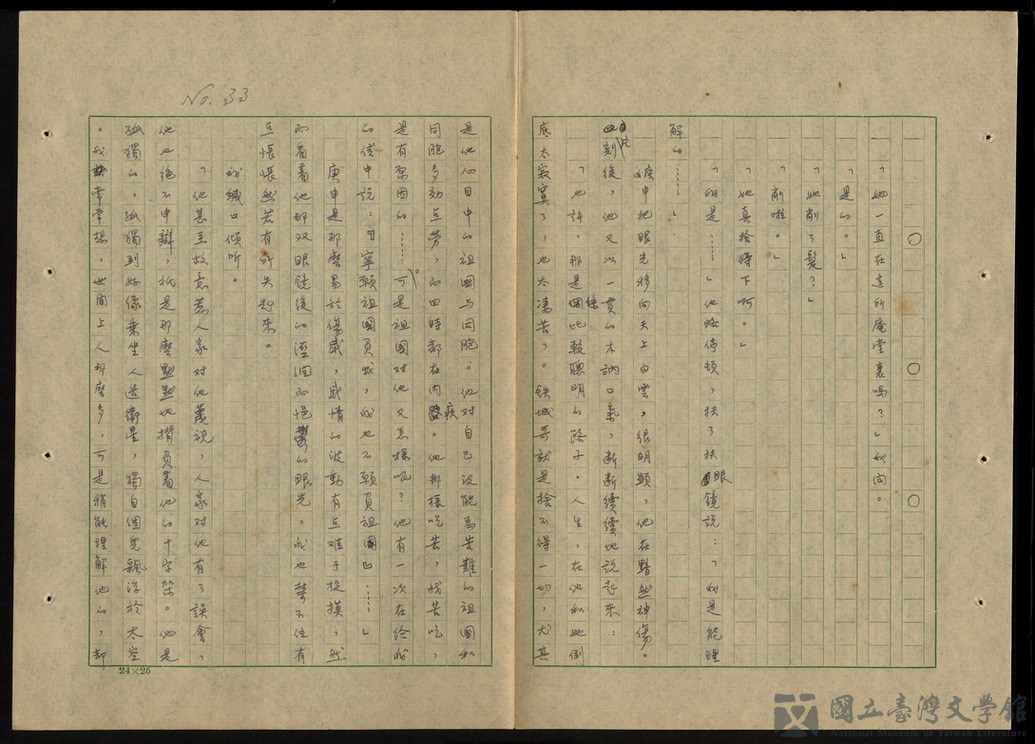 No. 33
○ ○ ○
「她一直在這所庵堂裏嗎？」我问。
「是的。」
「她削了髮？」
「削啦。」
「她真捨得下啊。」
「我是……」他略停頓，扶了扶眼镜說：「我是能理
解的……」
庚申把眼光移向天上白雲，很明顯，他在黯然神傷。
片刻後，他又以一貫的木訥口氣，斷斷續續地說起來：
「也許，那是個比較聰明的路子。人生，在他和她倒
底太寂寞了，也太凄苦了。铁城哥就是捨不得一切，尤其
是他心目中的祖國与同胞。他对自己沒能為苦難的祖國和
同胞多効点勞，而四時都在内疚。他那樣吃苦，找苦吃，
是有原因的……可是祖國对他又怎樣呢？他有一次在给我
的信中說：『寧願祖國負我，我也不願負祖國』……」
庚申是那麼易於傷感，感情的波動有点难于捉摸，然
而看着他那双眼镜後的溼润而悒鬱的眼光，我也禁不住有
点悵悵然若有所失起來。
我緘口倾听。
「他甚至故意惹人家对他蔑視，人家对他有了誤會，
他也绝不申辯，祇是那麼默默地揹負着他的十字架。他是
孤獨的，孤獨到好像乘坐人造衛星，獨自個兒飄浮於太空
。我常常想，世间上人那麼多，可是稍能理解他的，却
24×25
國立臺灣文學館
National Museum of Taiwan Literature